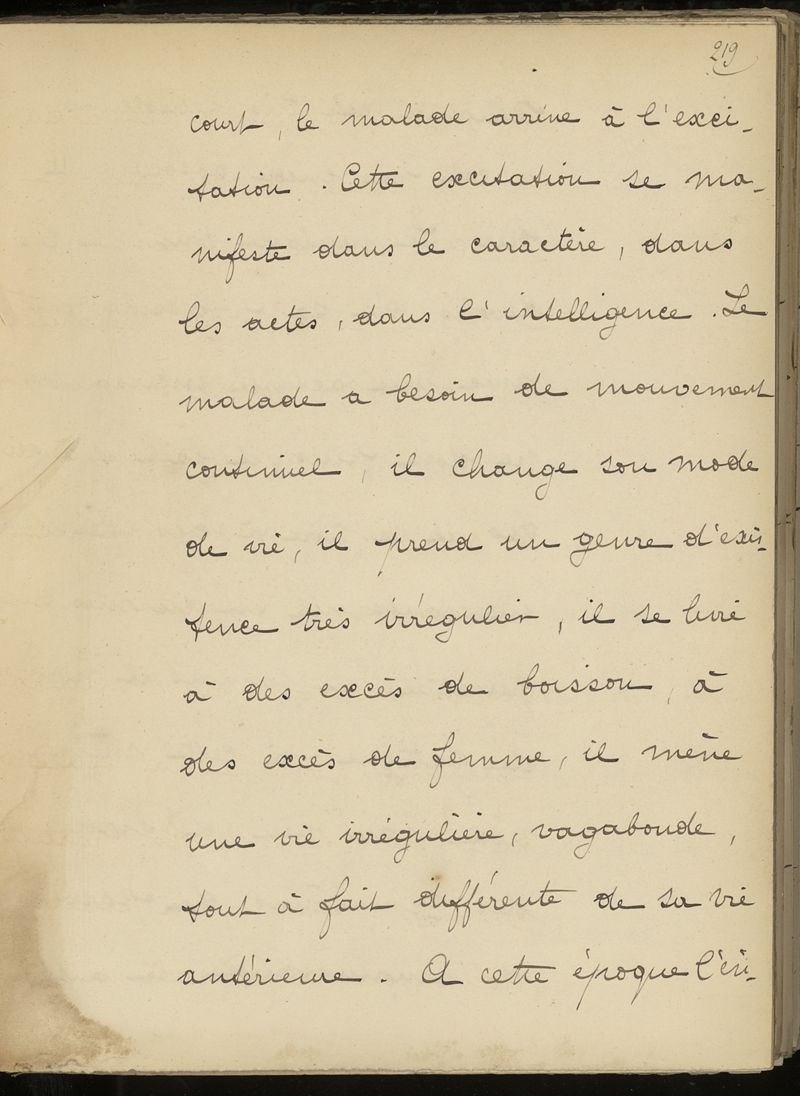 219
court, le malade arrive à l'exci-
tation. Cette excitation se ma-
nifeste dans le caractère, dans
les actes, dans l'intelligence. Le
malade a besoin de mouvement
continuel, il change son mode
de vie, il prend un genre d'exis-
tence très irrégulier, il se livre
à des excès de boisson, à
des excès de femme, il mène
une vie irrégulière, vagabonde,
tout à fait différente de sa vie
antérieure. A cette époque